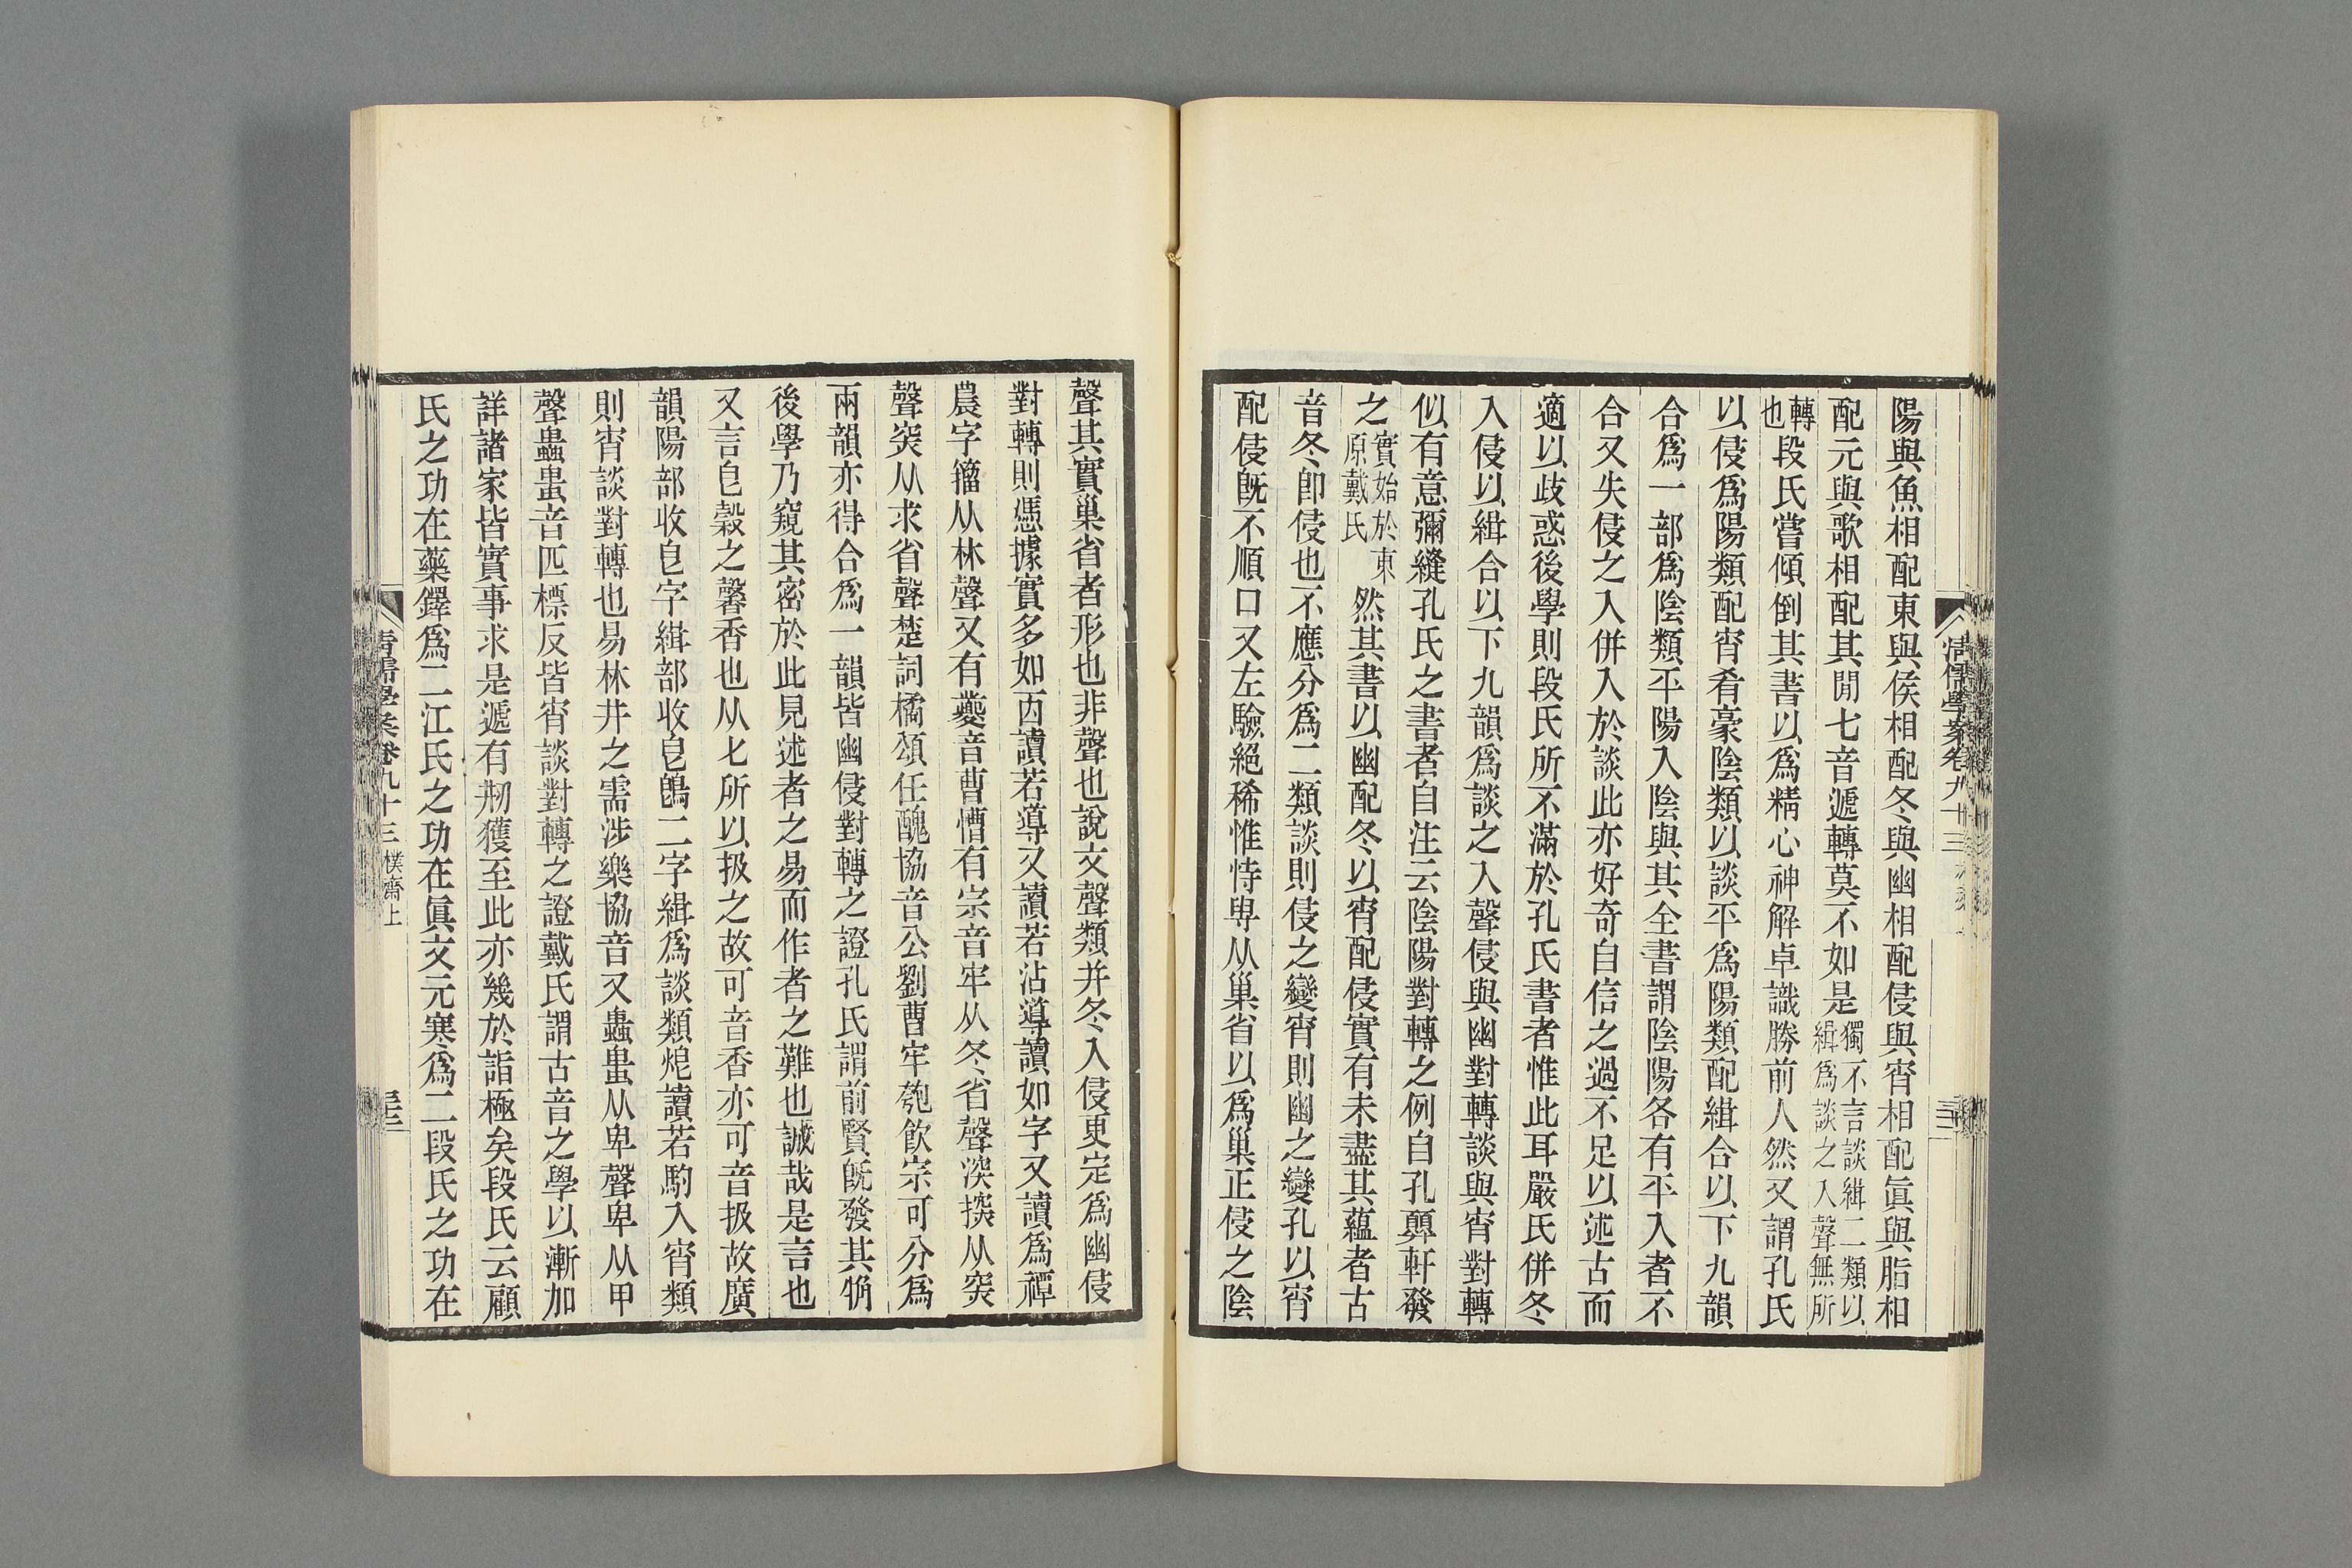 陽與魚相配東與侯相配冬與幽相配侵與宵相配眞與脂相
配元與歌相配其閒七音遞轉莫不如是獨不言談緝二類以緝爲談之入聲無所
轉也段氏嘗傾倒其書以爲精心神解卓識勝前人然又謂孔氏
以侵爲陽類配宵肴豪陰類以談平爲陽類配緝合以下九韻
合爲一部爲陰類平陽入陰與其全書謂陰陽各有平入者不
合又失侵之入併入於談此亦好奇自信之過不足以述古而
適以歧惑後學則段氏所不滿於孔氏書者惟此耳嚴氏併冬
入侵以緝合以下九韻爲談之入聲侵與幽對轉談與宵對轉
似有意彌縫孔氏之書者自注云陰陽對轉之例自孔顨軒發
之實始於東原戴氏然其書以幽配冬以宵配侵實有未盡其蘊者古
音冬卽侵也不應分爲二類談則侵之變宵則幽之變孔以宵
配侵旣不順口又左驗絕稀惟恃㝵从巢省以爲巢正侵之陰
聲其實巢省者形也非聲也說文聲類并冬入侵更定爲幽侵
對轉則憑據實多如㐁讀若導又讀若沾導讀如字又讀爲禫
農字籀从林聲又有蘷音曹慒有宗音牢从冬省聲湥揬从突
聲突从求省聲楚詞橘頌任醜協音公劉曹牢匏飮宗可分爲
兩韻亦得合爲一韻皆幽侵對轉之證孔氏謂前賢旣發其𧣾
後學乃窺其密於此見述者之易而作者之難也誠哉是言也
又言皀穀之馨香也从匕所以扱之故可音香亦可音扱故廣
韻陽部收皀字緝部收皀鵖二字緝爲談類炮讀若馰入宵類
則宵談對轉也易林井之需涉樂協音又蟲蜚从卑聲卑从甲
聲蟲蜚音匹標反皆宵談對轉之證戴氏謂古音之學以漸加
詳諸家皆實事求是遞有刱獲至此亦幾於詣極矣段氏云顧
氏之功在藥鐸爲二江氏之功在眞文元寒爲二段氏之功在
清儒學案卷九十三
清儒學案卷九十三 樸齋上